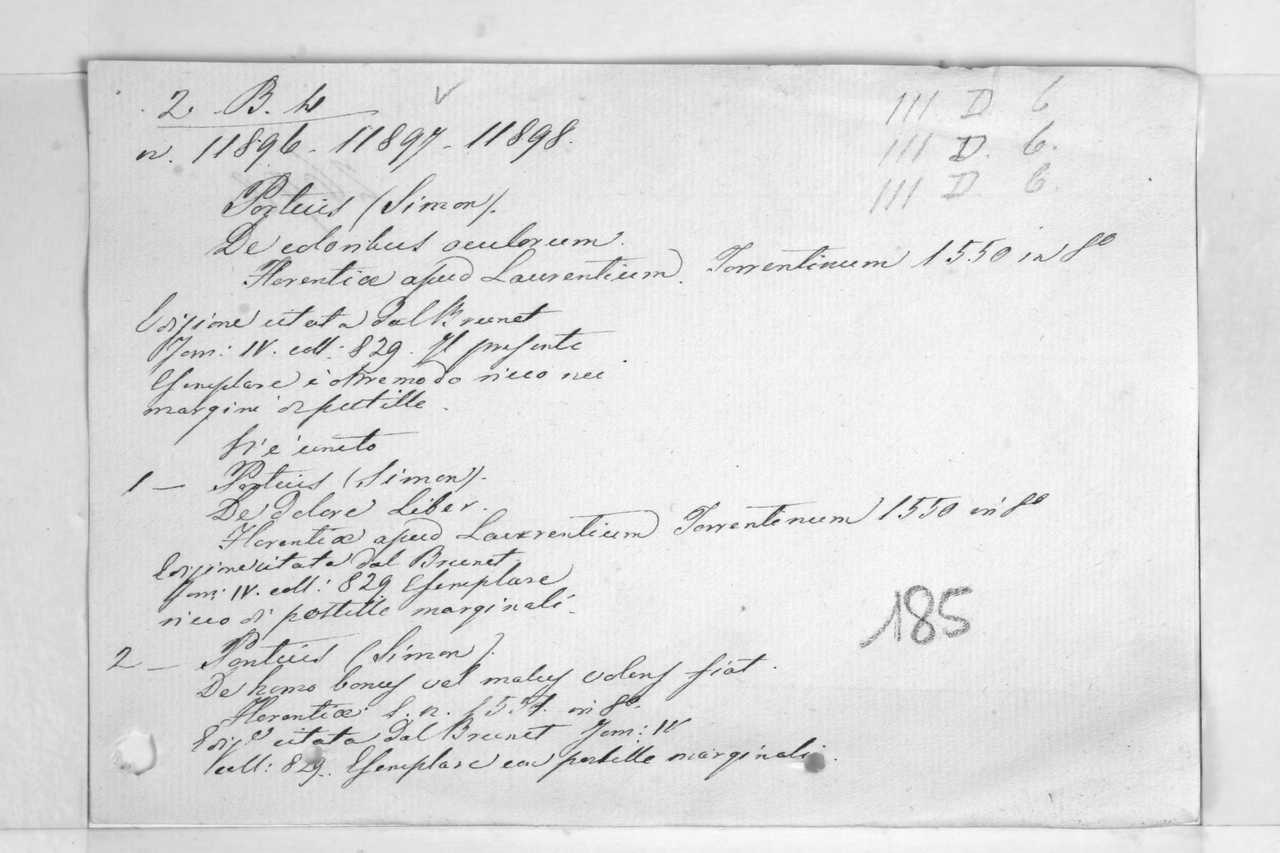 2 B. 4
III D 6
n. 11896 - 11897 - 11898.
III D. 6.
III D 6.
Portius (Simon).
De coloribus oculorum.
Florentiæ apud Laurentium Torrentinum 1550 in 8º
Edizione citata dal Brunet
Tom: IV. coll: 829. Il presente
Esemplare è oltremodo ricco nei
margini di postille.
Vi è unito
1 — Portius (Simon).
De dolore Liber.
Florentiæ apud Laurentium Torrentinum 1550 in 8º
Edizione citata dal Brunet
Tom: IV. coll: 829 Esemplare
ricco di postille marginali.
185
2 — Portius (Simon).
De homo bonus vel malus volens fiat.
Florentiæ s. n. 1551. in 8º
Edizº citata dal Brunet Tom: IV
coll: 829. Esemplare con postille marginali.